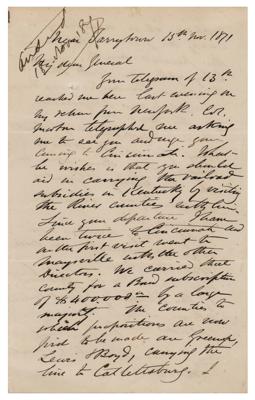 Near Tarrytown 15th Nov. 1871
My dear General
Your telegram of 13th
reached me here last evening on
my return from New York. Col.
telegraphed me asking
me to see you and urge your
coming to Cincinnati. What
he wishes is that you should
aid in carrying the railroad
subsidies in Kentucky by visiting
the River counties with him
Since your departure I have
been twice to Cincinnati and
on the first visit went to
Maysville with the other
Directors. We carried that
county for a Bond subscription
of $400000 by a large
majority. The Counties to
which propositions are now
to be made are Greenup,
Lewis & Boyd, carrying the
line to Catlettsburg. I